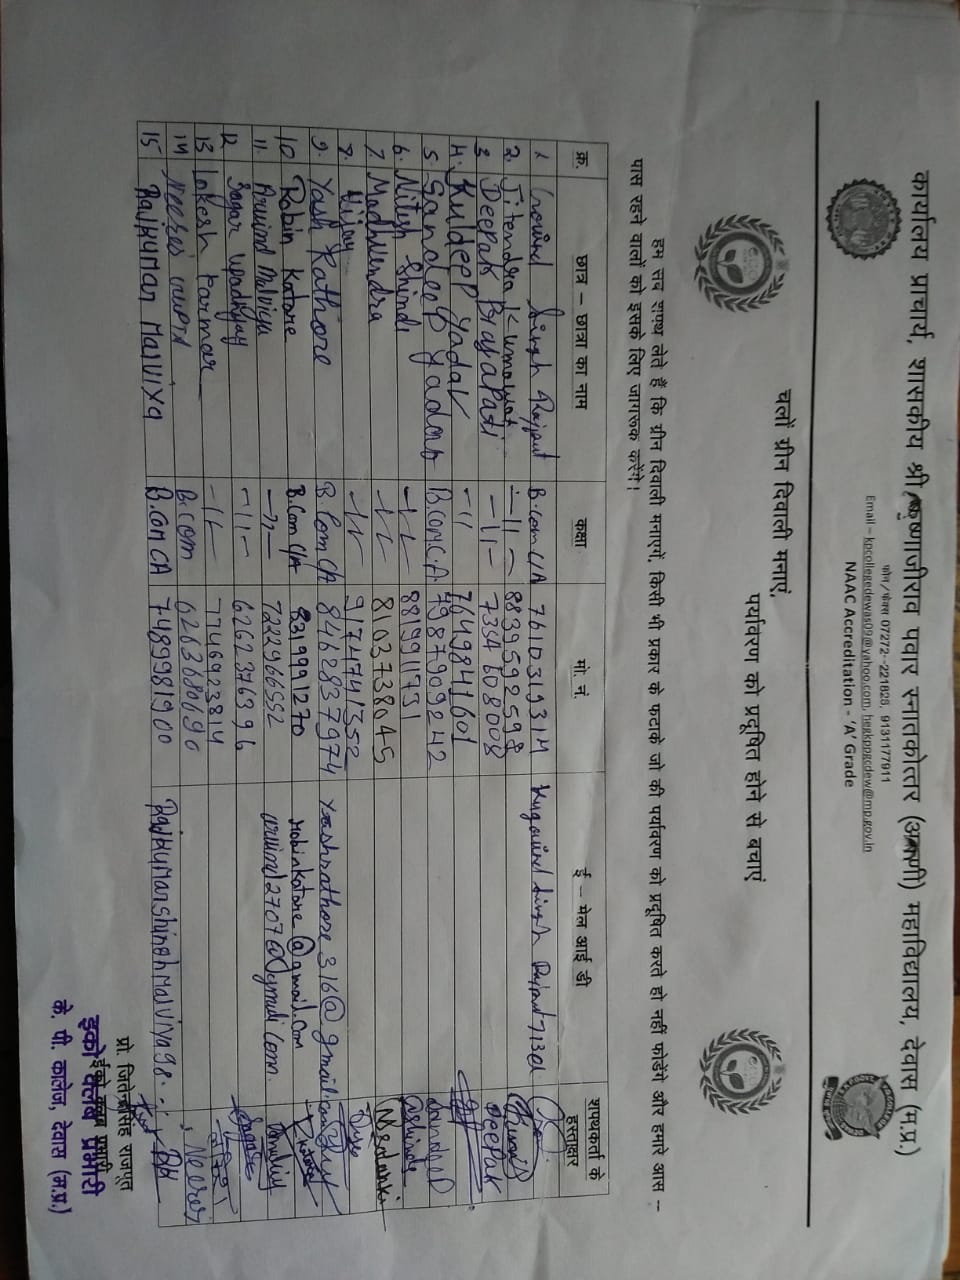 कार्यालय प्राचार्य, शासकीय श्री कृष्णाजीराव पवार स्नातकोत्तर (अग्रणी) महाविद्यालय, देवास (म.प्र.)
फोन/फेक्स 07272-221828, 9131177911
Email – kpcollegedewas09@yahoo.com, hegkppgcdew@mp.gov.in
NAAC Accreditation - 'A' Grade
चलों ग्रीन दिवाली मनाएं
पर्यावरण को प्रदूषित होने से बचाएं
हम सब शपथ लेते हैं कि ग्रीन दिवाली मनाएगें, किसी भी प्रकार के फटाके जो की पर्यावरण को प्रदूषित करते हो नहीं फोडेंगे और हमारे आस –
पास रहने वालों को इसके लिए जागरूक करेंगे।
क्र. छात्र – छात्रा का नाम कक्षा मो. नं. ई – मेल आई डी शपथकर्ता के हस्ताक्षर
1 Govind Singh Rajput B.com C/A 7610319314
2. Jitendra Kumawat –11– 8839592598
3 Deepak Prajapati –11– 7354608008 Deepak
4. Kuldeep Yadav –11 7649841601
5. Sandeep Yadav B.com.C.A. 7987909242
6. Nitesh Shinde 8819911731
7. Madhvendra 8103738045
8. Vijay 9174741352
9. Yash Rathore B Com CA 8462837974 yashrathore316@gmail.com
10 Robin Katore B.Com C/A 8319991270 robinkatore@gmail.com
11. Arvind Malviya 7222966552 arvind2707@gmail.com
12 Sagar Upadhyay –11– 6262376396
13 Lokesh Parmar –11– 7746923814
14 Neeraj Gupta B.com 6263600690 Neeraj
15 Rajkumar Malviya B.com CA 7489981900
प्रो. जितेन्द्रसिंह राजपूत
ईको क्लब प्रभारी
इको क्लब प्रभारी
के. पी. कालेज, देवास (म.प्र.)